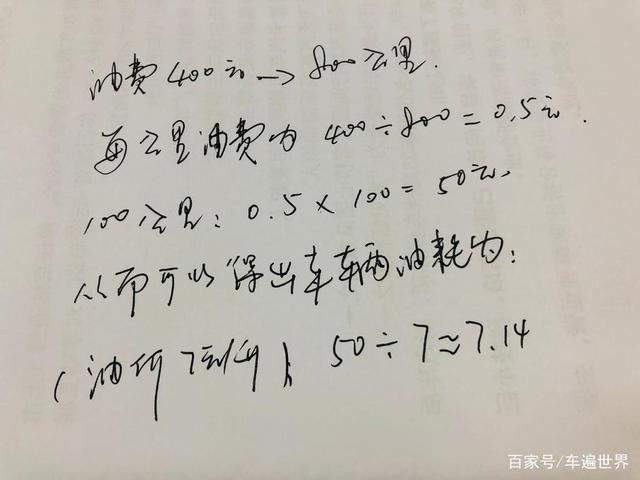 油费400元→800公里.
每公里油费为 400÷800=0.5元.
100公里: 0.5×100=50元.
从而可以得出车车辆油耗为:
(油价7元/升) 50÷7≈7.14
百家号/车遍世界